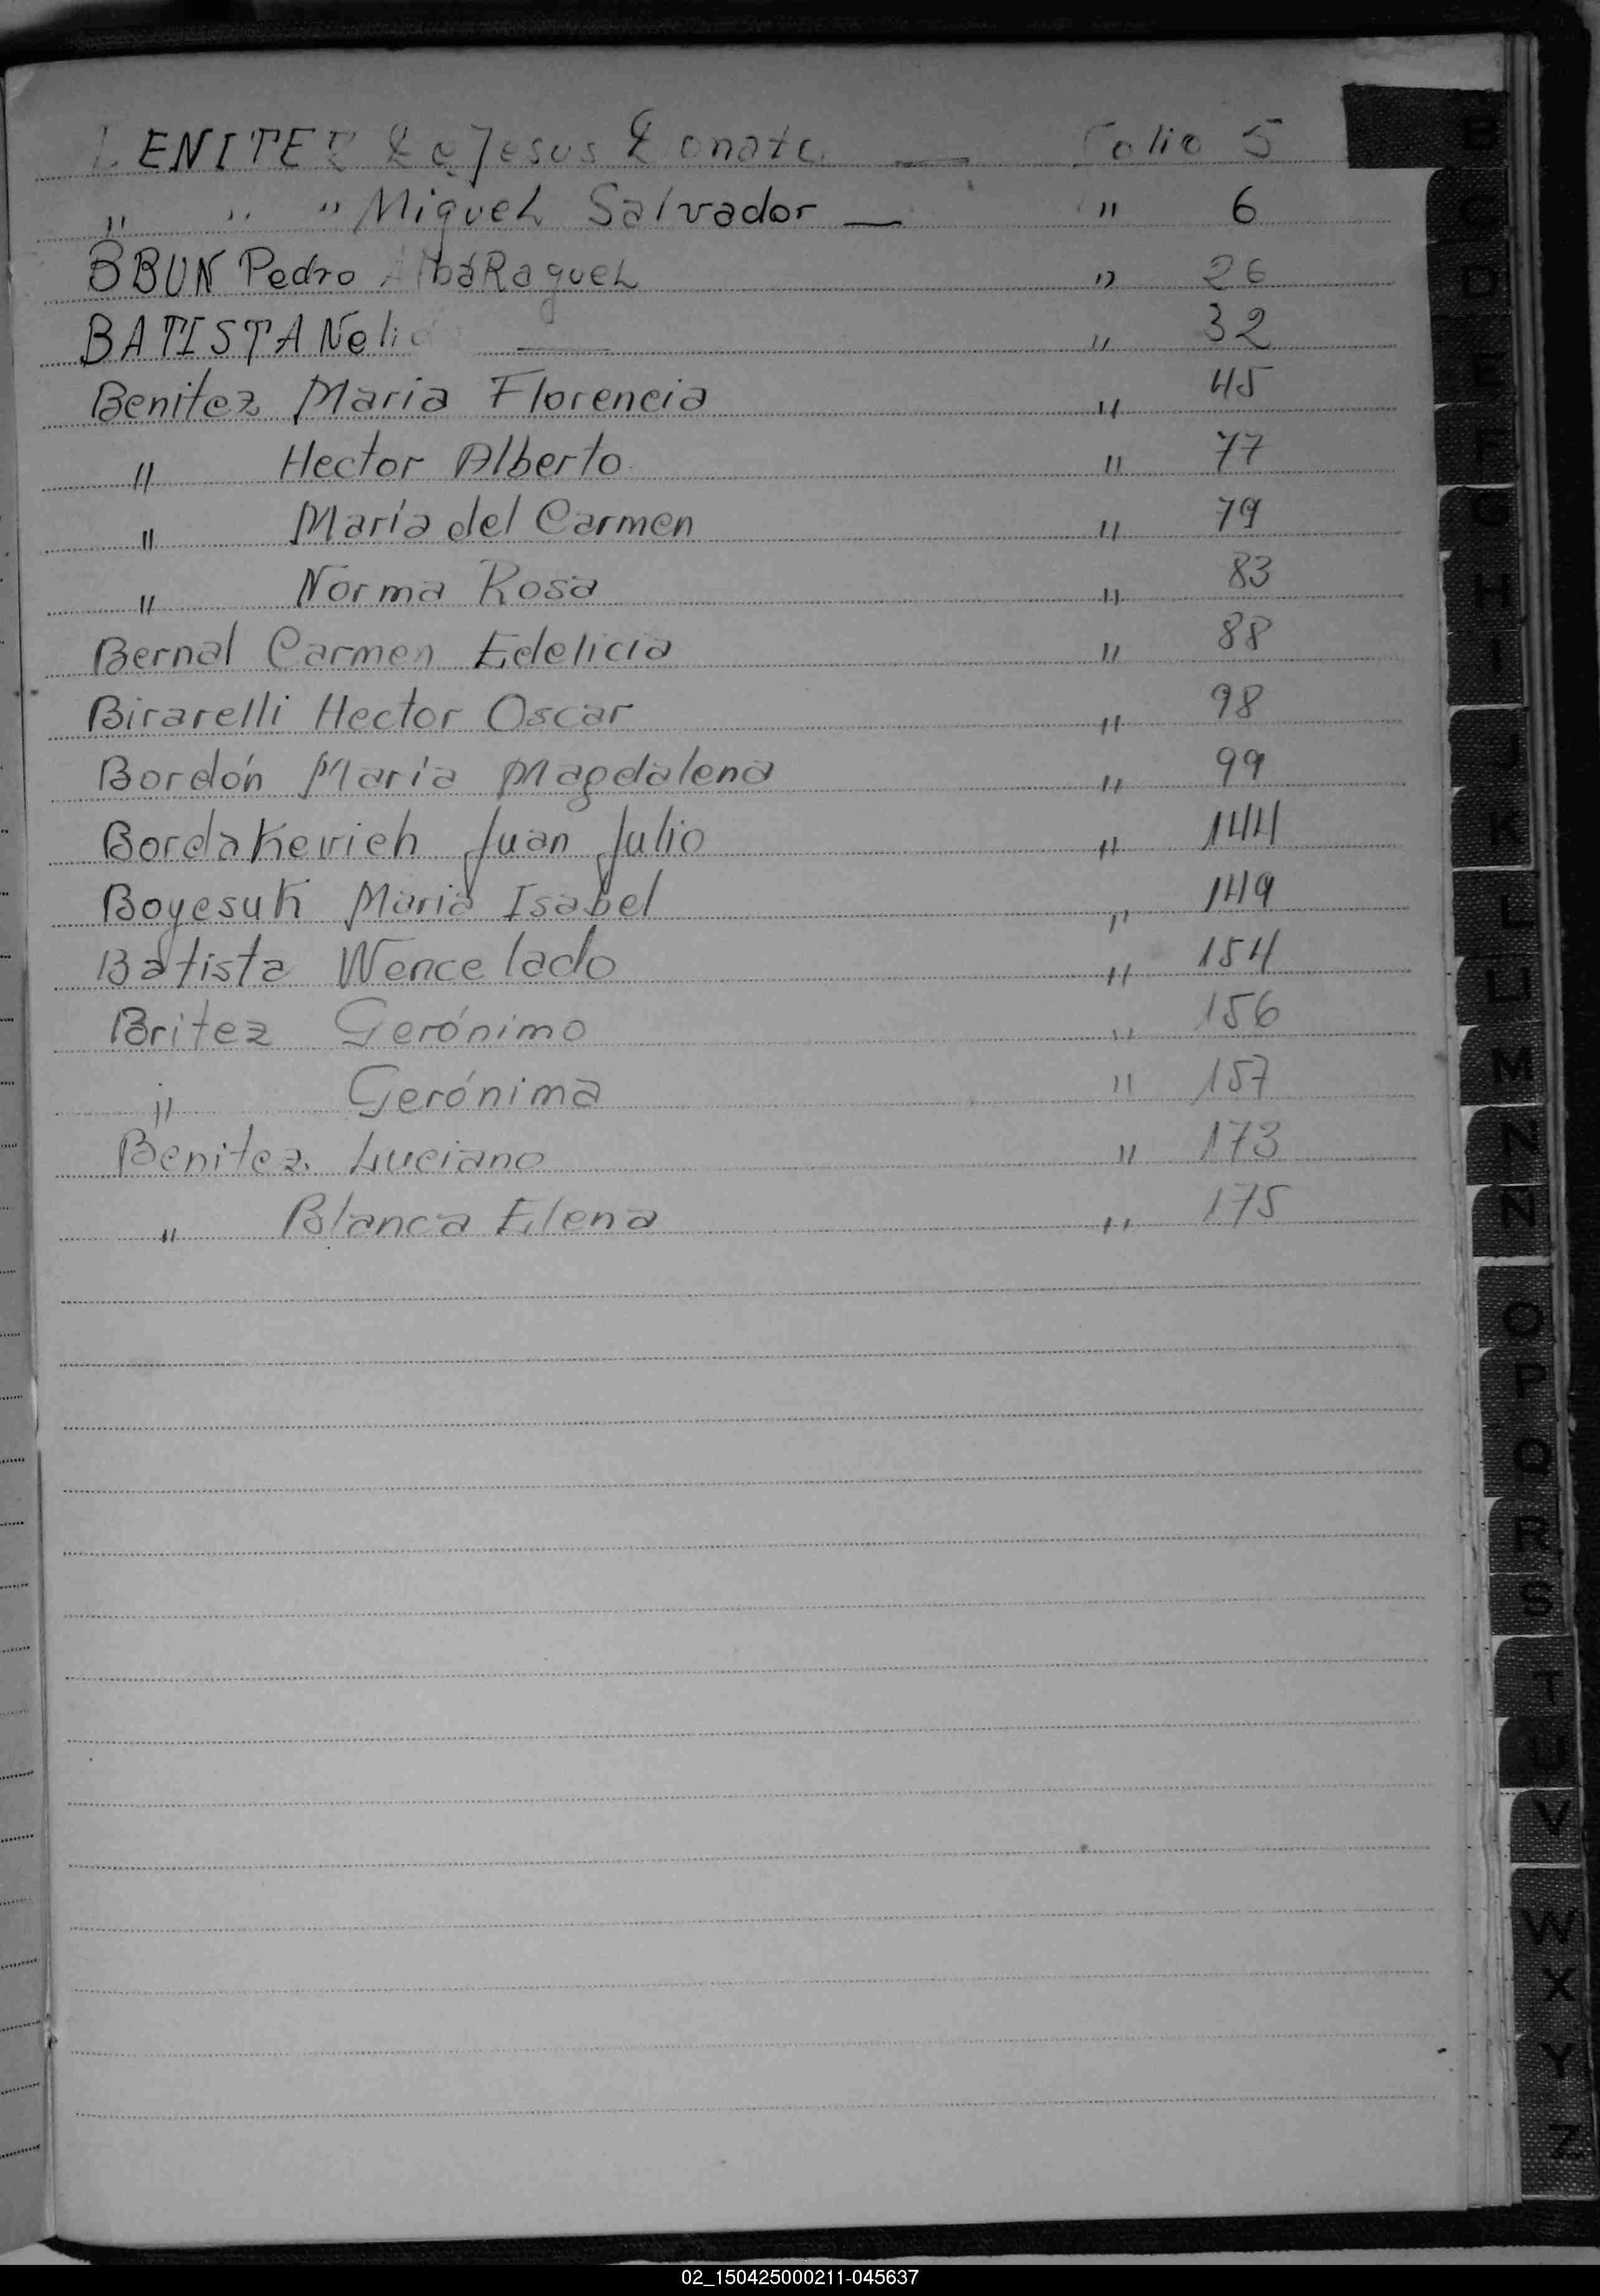 BENITEZ de Jesus Donata — Folio 5
" " " Miguel Salvador — " 6
BBUN Pedro Alba Raquel " 26
BATISTA Nelida — " 32
Benitez Maria Florencia " 45
" Hector Alberto " 77
" María del Carmen " 79
" Norma Rosa " 83
Bernal Carmen Edelicia " 88
Birarelli Hector Oscar " 98
Bordón María Magdalena " 99
Bordakevich Juan Julio " 144
Boyesuk Maria Isabel " 149
Batista Wencelado " 154
Britez Gerónimo " 156
" Gerónima " 157
Benitez Luciano " 173
" Blanca Elena " 175
B
C
D
E
F
G
H
I
J
K
L
LL
M
N
Ñ
O
P
Q
R
S
T
U
V
W
X
Y
Z
02_150425000211-045637